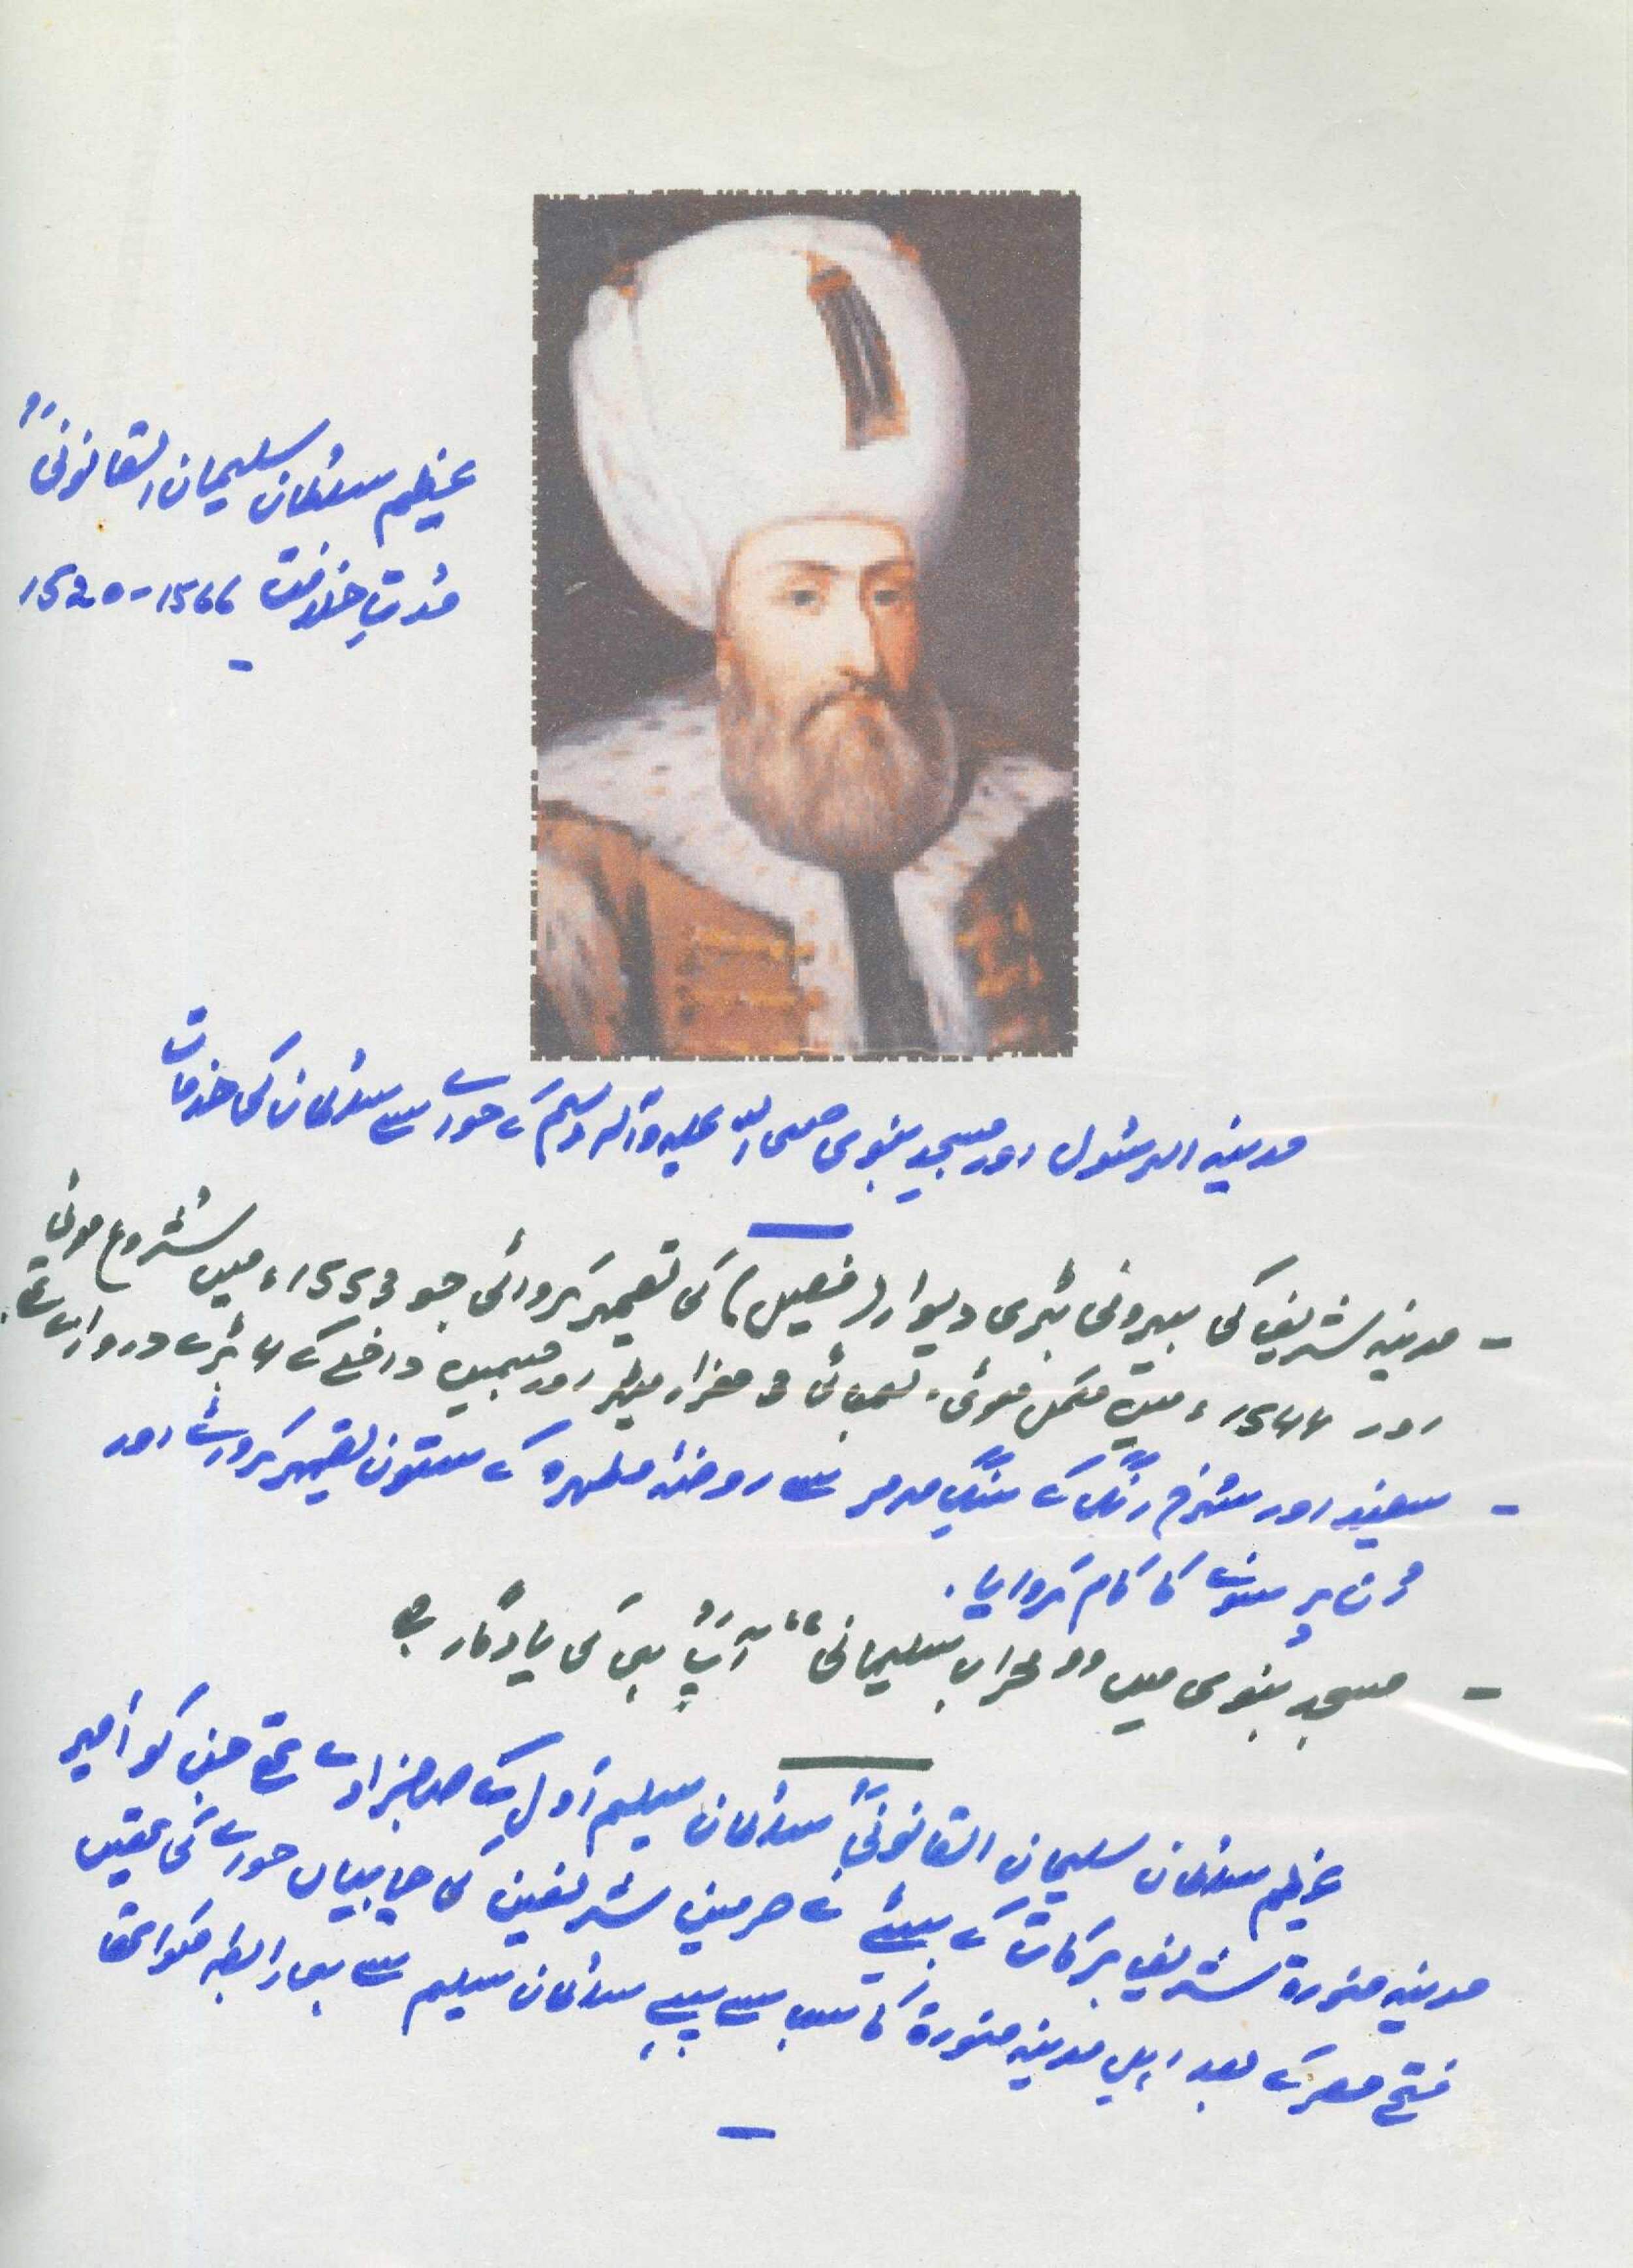 عظیم سلطان سلیمان القانونیؒ
مُدتِ خلافت 1566-1520
مدینہ الرسُول اور مسجدِ نبوی صلی اللہ علیہ وآلہ وسلم کے حوالے سے سلطان کی خدمات
- مدینہ شریف کی بیرونی بڑی دیوار (فصیل) کی تعمیر کروائی جو 1553ء میں شُروع ہوئی
اور 1544ء میں مکمل ہوئی۔ لمبائی 3 ہزار میٹر اور جسمیں داخلے کے 4 بڑے دروازے تھے۔
- سفید اور سُرخ رنگ کے سنگِ مرمر سے روضۂ مطہرہ کے ستون تعمیر کروائے اور
اُن پر سونے کا کام کروایا۔
- مسجدِ نبوی میں "محرابِ سلیمانی" آپؒ ہی کی یادگار ہے
عظیم سلطان سلیمان القانونیؒ سلطان سلیم اول کے صاحبزادے تھے جن کو امیرِ
مدینہ منورۃ شریف برکات کے بیٹے نے حرمین شریفین کی چابیاں حوالے کی تھیں
فتح مصر کے بعد اہلِ مدینہ منورۃ کا سب سے پہلے سلطان سلیم سے ہی رابطہ ہوا تھا